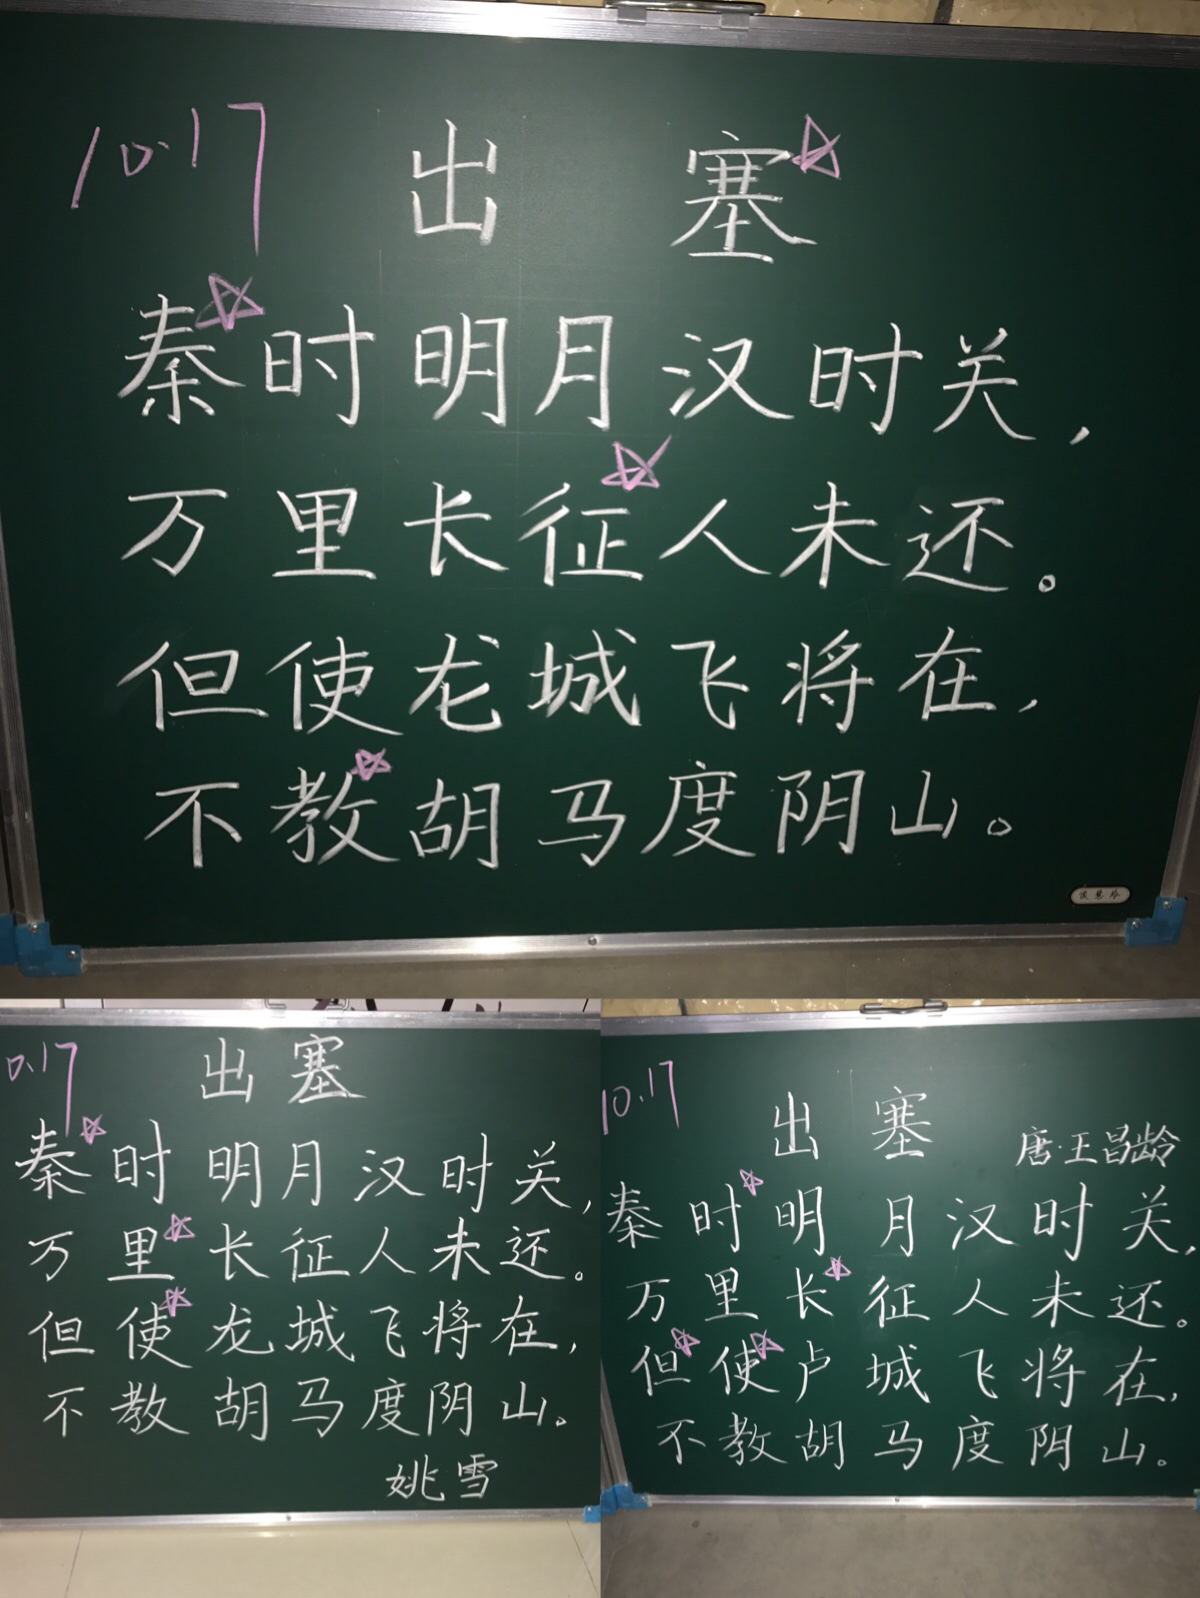 10.17
出 塞
秦时明月汉时关,
万里长征人未还。
但使龙城飞将在,
不教胡马度阴山。
0.17
出塞
秦时明月汉时关,
万里长征人未还。
但使龙城飞将在,
不教胡马度阴山。
姚雪
10.17
出 塞
唐·王昌龄
秦时明月汉时关,
万里长征人未还。
但使卢城飞将在,
不教胡马度阴山。